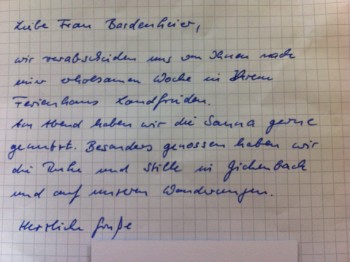 Liebe Frau Bardenheier,
wir verabschieden uns von Ihnen nach
einer erholsamen Woche in Ihrem
Ferienhaus Landfrieden.
Am Abend haben wir die Sauna gerne
genutzt. Besonders genossen haben wir
die Ruhe und Stille in Gichenbach
und auf unseren Wanderungen.
Herzliche Grüße